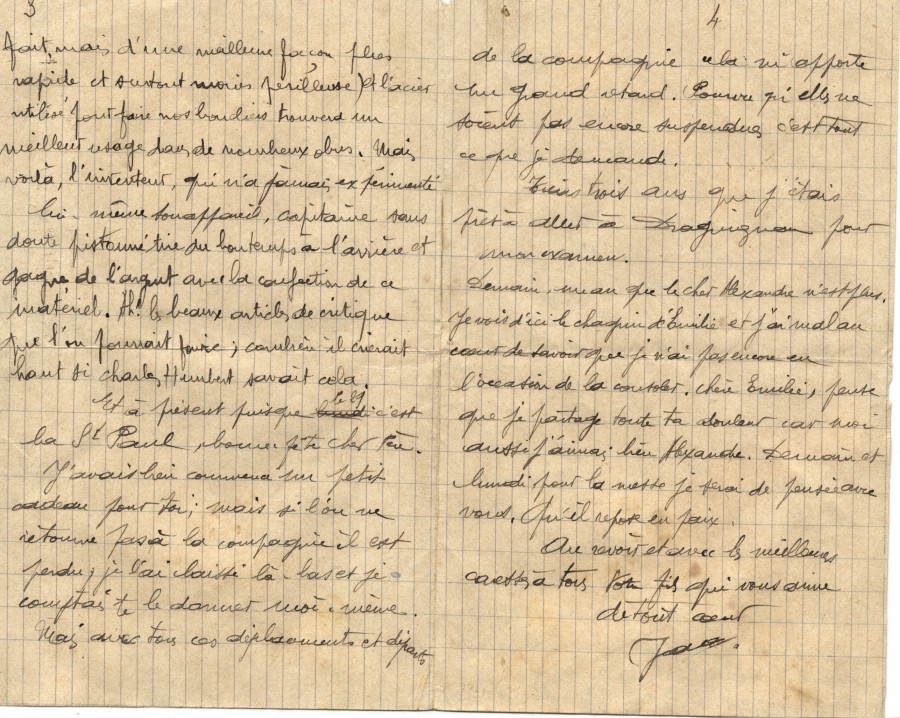 3
fait, mais d'une meilleure façon plus
rapide et surtout moins périlleuse) Et l'acier
utilisé pour faire nos boucliers trouvera un
meilleur usage dans de nombreux obus. Mais
voilà, l'inventeur, qui n'a jamais expérimenté
lui-même son appareil, capitaine sans
doute pistonné tire du bon temps à l'arrière et
gagne de l'argent avec la confection de ce
matériel. Ah! les beaux articles de critique
que l'on pourrait faire ; combien il crierait
haut si Charles Humbert savait cela.
Et à présent puisque le 29 c'est
la St Paul, bonne fête cher Père.
J'avais bien commencé un petit
cadeau pour toi ; mais si l'on ne
retourne pas à la compagnie il est
perdu ; je l'ai laissé là-bas et je
comptais te le donner moi-même.
Mais avec tous ces déplacements et départs
4
de la compagnie cela m'apporte
un grand retard. Pourvu qu'elles ne
soient pas encore suspendues c'est tout
ce que je demande.
trois ans que j'étais
prêt à aller à Draguignan pour
mon examen.
Demain, un an que le cher Alexandre n'est plus.
Je vois d'ici le chagrin d'Emilie et j'ai mal au
cœur de savoir que je n'ai pas encore eu
l'occasion de la consoler. Chère Emilie, pense
que je partage toute ta douleur car moi
aussi j'aimais bien Alexandre. Demain et
lundi pour la messe je serai de pensée avec
vous. Qu'il repose en paix.
Au revoir et avec les meilleures
caresses à tous Votre fils qui vous aime
de tout cœur